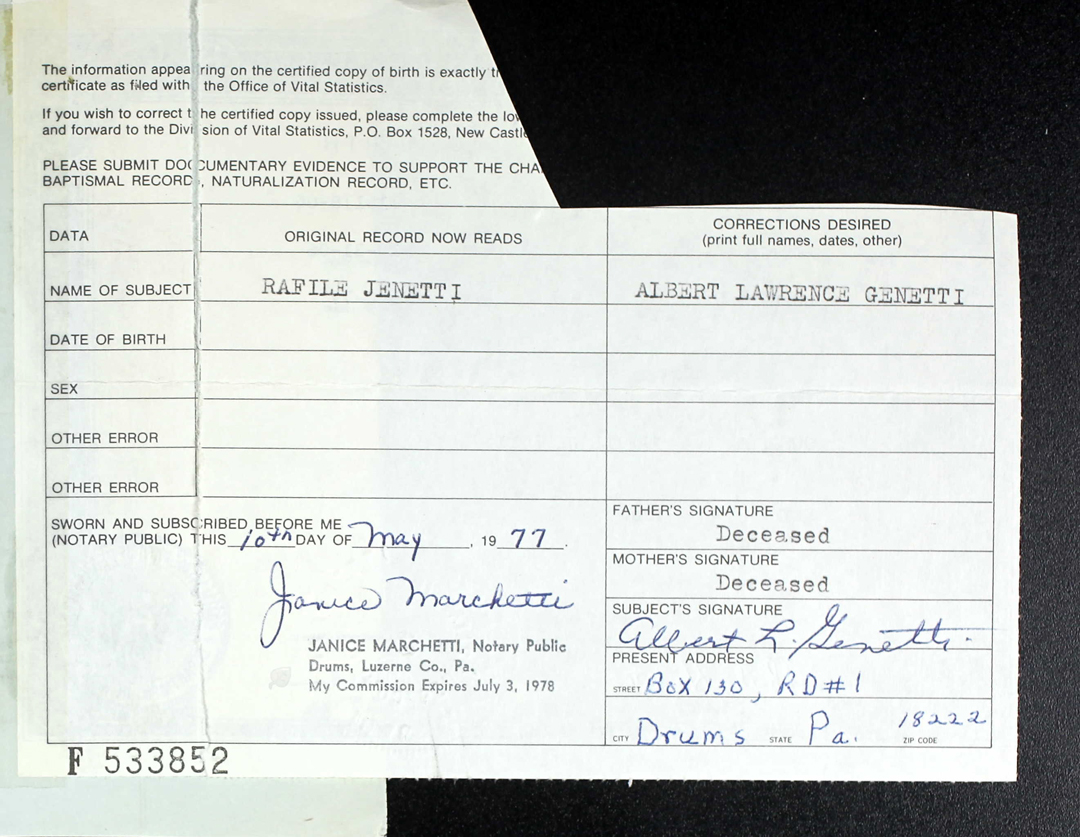 The information appearing on the certified copy of birth is exactly
certificate as filed with the Office of Vital Statistics.
If you wish to correct the certified copy issued, please complete the
and forward to the Division of Vital Statistics, P.O. Box 1528, New Castle
PLEASE SUBMIT DOCUMENTARY EVIDENCE TO SUPPORT THE
BAPTISMAL RECORD, NATURALIZATION RECORD, ETC.
DATA ORIGINAL RECORD NOW READS CORRECTIONS DESIRED
(print full names, dates, other)
NAME OF SUBJECT RAFILE JENETTI ALBERT LAWRENCE GENETTI
DATE OF BIRTH
SEX
OTHER ERROR
OTHER ERROR
SWORN AND SUBSCRIBED BEFORE ME
(NOTARY PUBLIC) THIS 10th DAY OF May, 19 77.
Janice Marchetti
JANICE MARCHETTI, Notary Public
Drums, Luzerne Co., Pa.
My Commission Expires July 3, 1978
FATHER'S SIGNATURE
Deceased
MOTHER'S SIGNATURE
Deceased
SUBJECT'S SIGNATURE
Albert L. Genetti.
PRESENT ADDRESS
STREET Box 130, RD#1
CITY Drums STATE Pa. 18222 ZIP CODE
F 533852